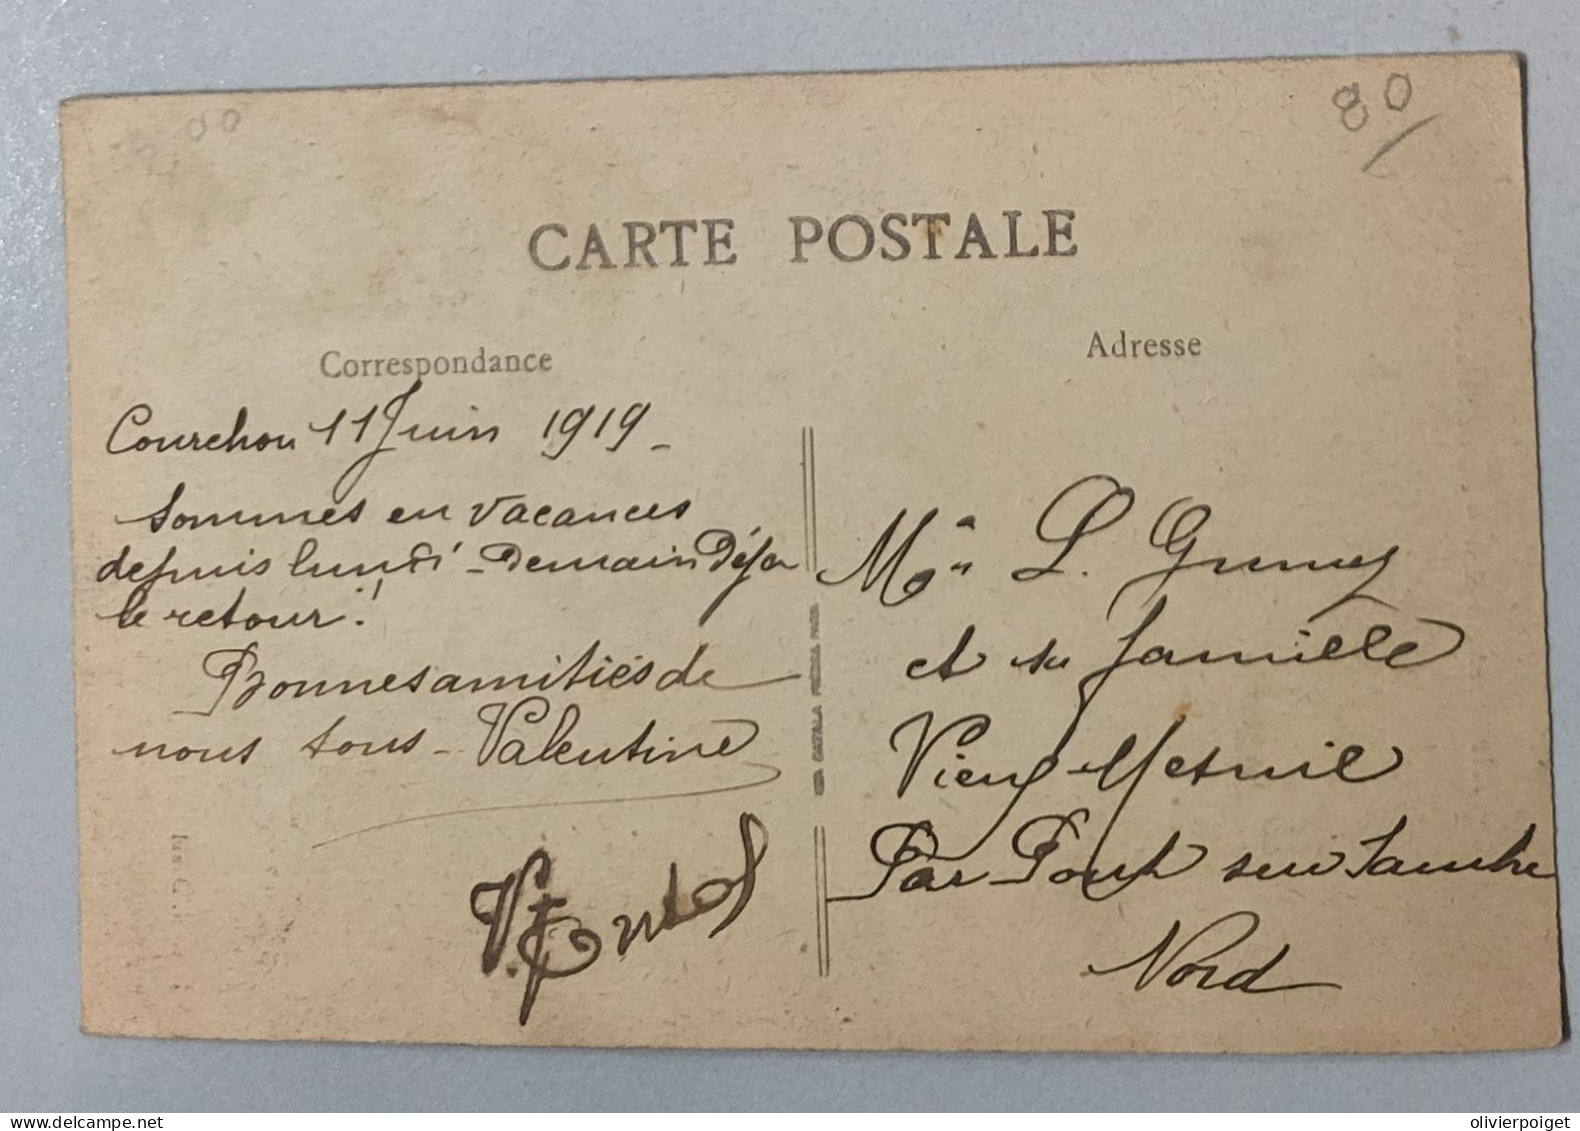 80
CARTE POSTALE
Correspondance
Adresse
Courchon 11 Juin 1919 -
Sommes en vacances
depuis lundi - Demain Déja
le retour !
Bonnes amitiés de
nous tous - Valentine
L.
et sa famille
Vieux Mesnil
Par Pont sur Sambre
Nord
delcampe.net
olivierpoiget